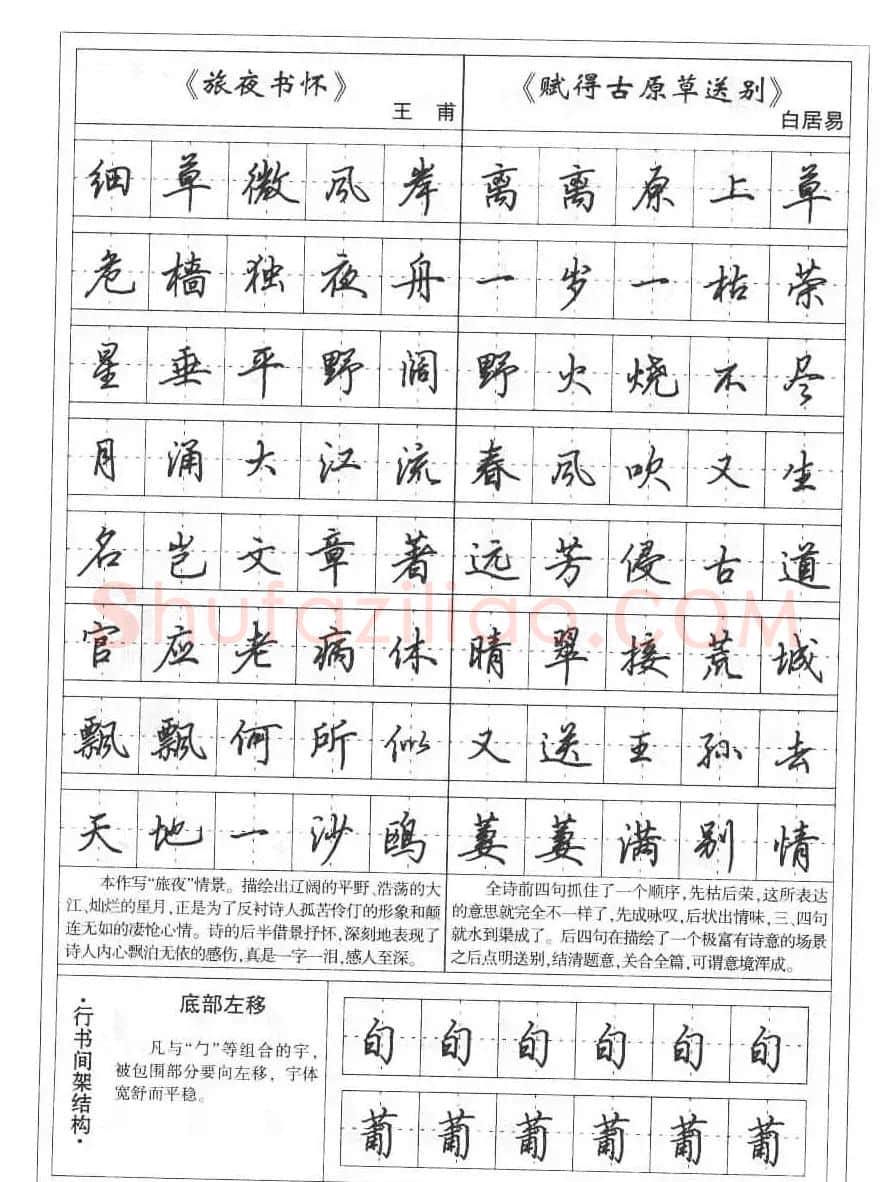 《旅夜书怀》
王 甫
细草微风岸
危樯独夜舟
星垂平野阔
月涌大江流
名岂文章著
官应老病休
飘飘何所似
天地一沙鸥
本作写“旅夜”情景。描绘出辽阔的平野、浩荡的大
江、灿烂的星月,正是为了反衬诗人孤苦伶仃的形象和颠
连无如的凄怆心情。诗的后半借景抒怀,深刻地表现了
诗人内心飘泊无依的感伤,真是一字一泪,感人至深。
《赋得古原草送别》
白居易
离离原上草
一岁一枯荣
野火烧不尽
春风吹又生
远芳侵古道
晴翠接荒城
又送王孙去
萋萋满别情
全诗前四句抓住了一个顺序,先枯后荣,这所表达
的意思就完全不一样了,先成咏叹,后状出情味,三、四句
就水到渠成了。后四句在描绘了一个极富有诗意的场景
之后点明送别,结清题意,关合全篇,可谓意境浑成。
·行书间架结构·
底部左移
凡与“勹”等组合的字,
被包围部分要向左移,字体
宽舒而平稳。
旬旬旬旬旬旬
葡葡葡葡葡葡
Shufaziliao.COM